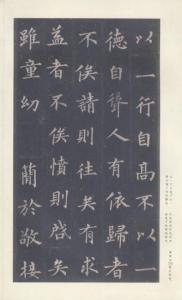 以一行自高不以一
德自聳人有依歸者
不俟請則往矣有求
益者不俟憤則啓矣
雖童幼蘭於敬接